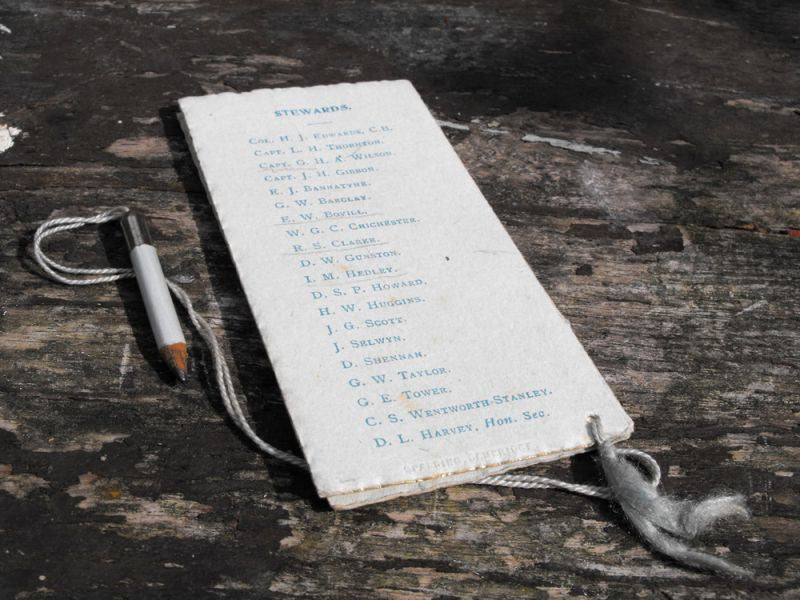 STEWARDS.
COL. H. J. EDWARDS, C.B.
CAPT. L. H. THORNTON.
CAPT. G. H. A. WILSON.
CAPT. J. H. GIBBON.
R. J. BANNATYNE.
G. W. BARCLAY.
E. W. BOVILL.
W. G. C. CHICHESTER.
R. S. CLARKE.
D. W. GUNSTON.
I. M. HEDLEY.
D. S. P. HOWARD.
H. W. HUGGINS.
J. G. SCOTT.
J. SELWYN.
D. SHENNAN.
G. W. TAYLOR.
G. E. TOWER.
C. S. WENTWORTH-STANLEY.
D. L. HARVEY, Hon. Sec.
SPALDING, CAMBRIDGE